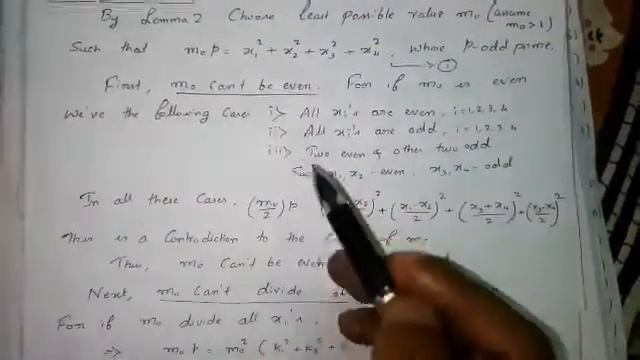 By Lemma 2 Choose least possible value m₀ (assume m₀ > 1)
Such that m₀p = x₁² + x₂² + x₃² + x₄², where p-odd prime.
①
First, m₀ can't be even. For if m₀ is even
We've the following Cases i> All xi's are even, i = 1, 2, 3, 4
ii> All xi's are odd, i = 1, 2, 3, 4
iii> Two even & other two odd
x₁, x₂ - even, x₃, x₄ - odd
In all these Cases, (m₀/2) p x₂)² + (x₁-x₂/2)² + (x₃+x₄/2)² + (x₃-x₄/2)²
This is a Contradiction to the of m₀.
Thus, m₀ Can't be even
Next, m₀ Can't divide
For if m₀ divide all xi's.
⇒ m₀p = m₀² (k₁² + k₂² +